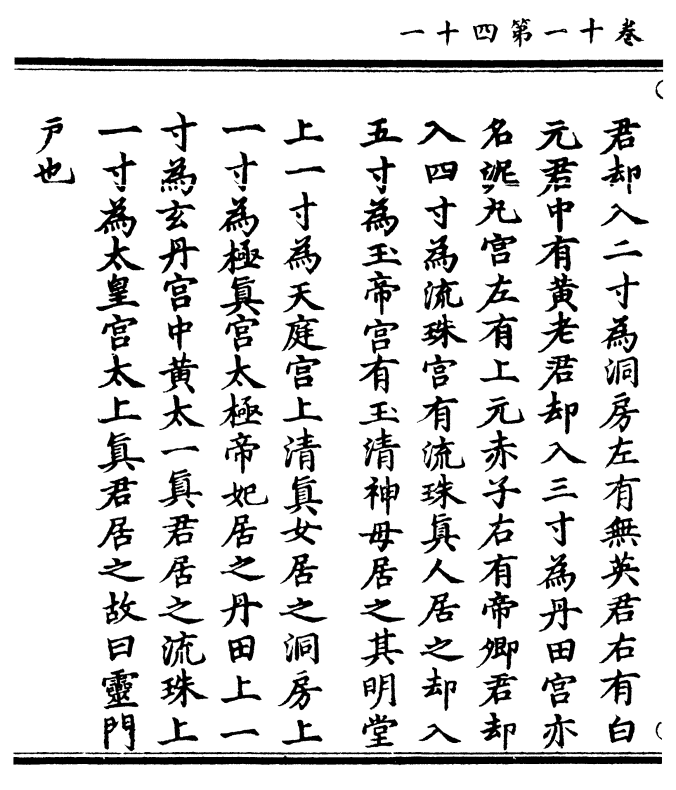 卷十一第四十一
君却入二寸為洞房左有無英君右有白
元君中有黃老君却入三寸為丹田宮亦
名泥丸宮左有上元赤子右有帝卿君却
入四寸為流珠宮有流珠眞人居之却入
五寸為玉帝宮有玉清神母居之其明堂
上一寸為天庭宮上清眞女居之洞房上
一寸為極眞宮太極帝妃居之丹田上一
寸為玄丹宮中黃太一眞君居之流珠上
一寸為太皇宮太上眞君居之故曰靈門
戶也